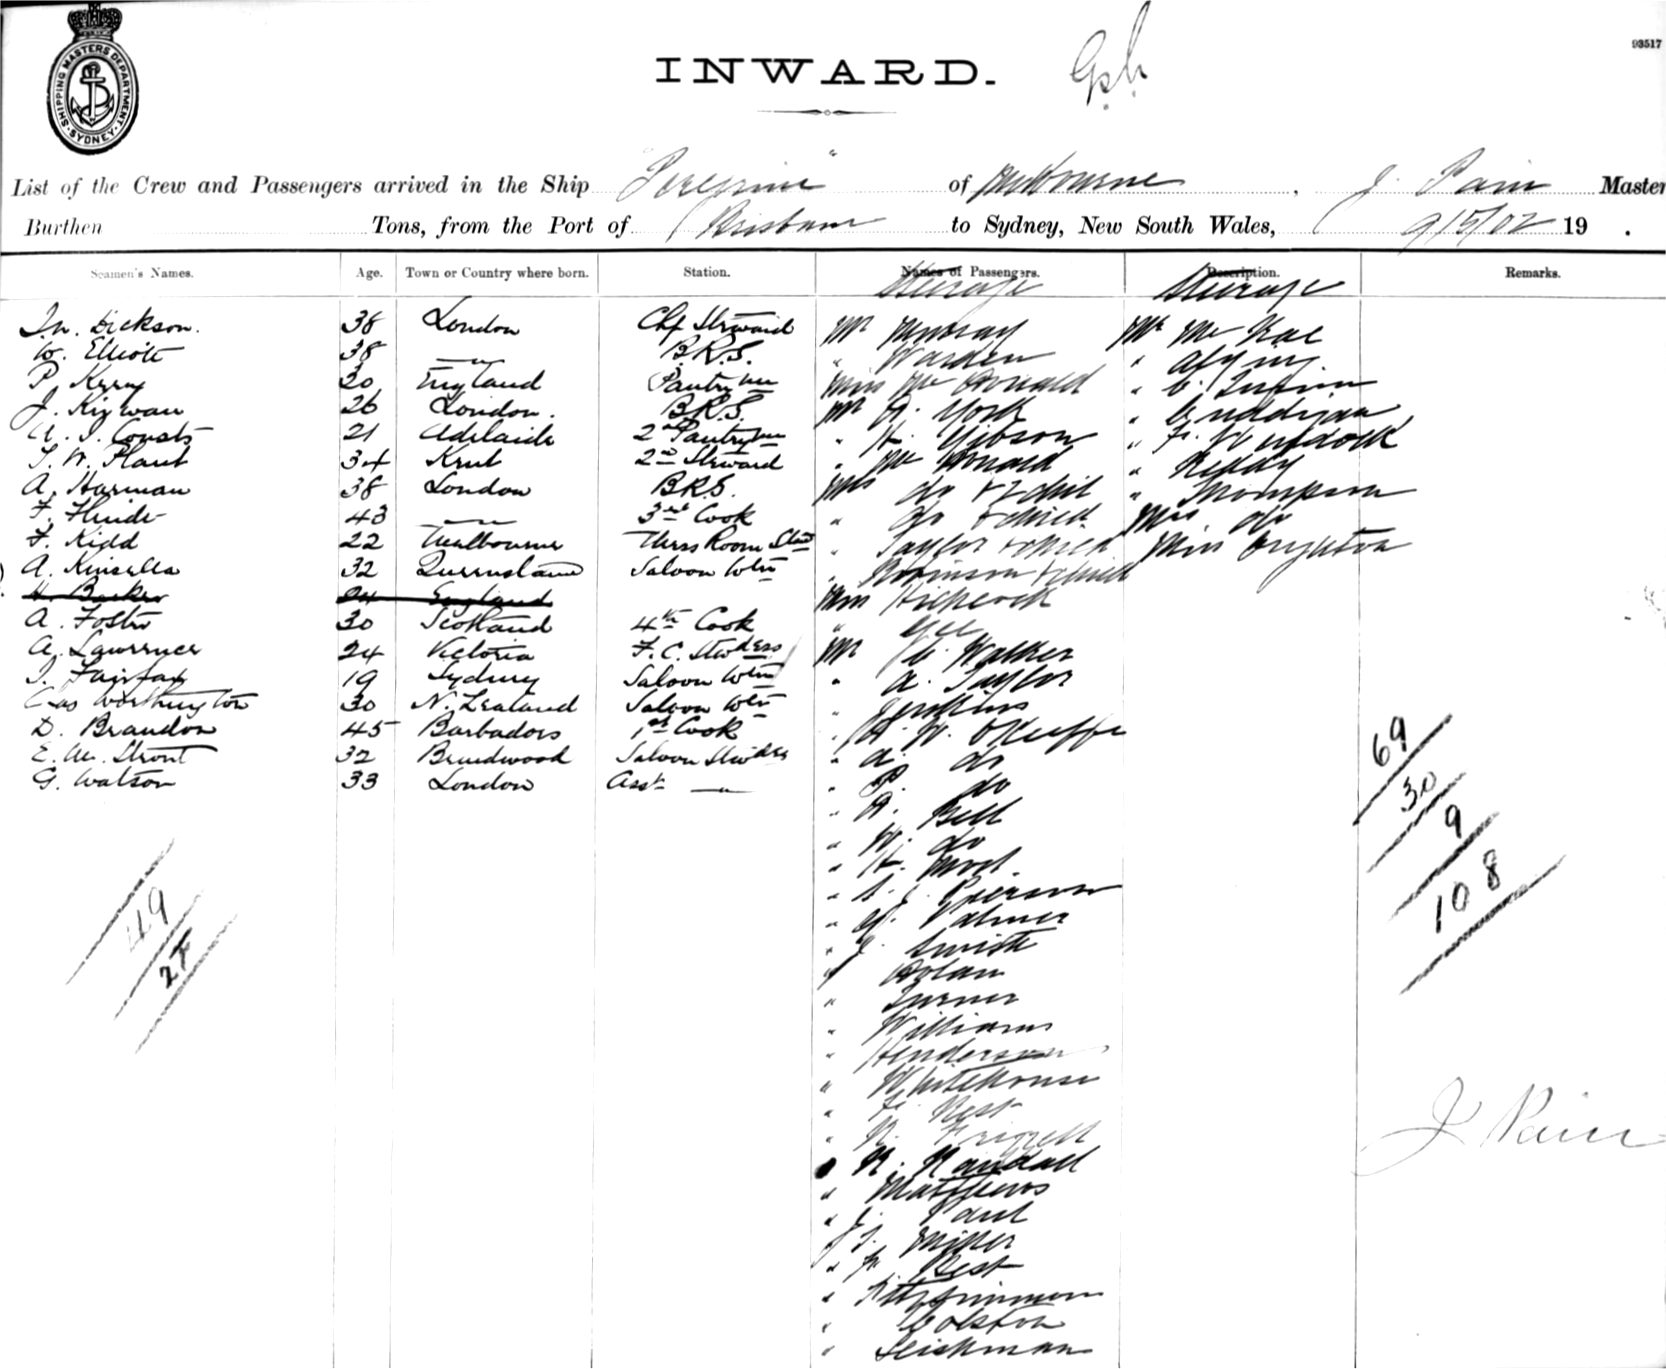 SHIPPING MASTERS DEPARTMENT. SYDNEY
INWARD.
93517
List of the Crew and Passengers arrived in the Ship "Peregrine" of Melbourne, J. Pain Master
Burthen Tons, from the Port of Brisbane to Sydney, New South Wales, 9/5/02 19 .
Seamen's Names. Age. Town or Country where born. Station. Names of Passengers. Description. Remarks.
Steerage Steerage
Jn. Dickson. 38 London Chf Steward Mr Murray Mr Mc Rae
W. Elliott 38 — " — B.R.S. " Warden "
P. Kerry 30 England Pantryman Miss Mc Donald " C.
J. Kirwan 26 London. B.R.S. Mr A. York "
A. J. Coats 21 Adelaide 2nd Pantryman " H. Gibson " F. Murdock
T. W. Plant 34 Kent 2nd Steward " Mc Donald " Reddy
A. Harman 38 London B.R.S. Mrs do & 2 chil " Thompson
F. Hinde 43 — " — 3rd Cook " do & child Mrs do
F. Kidd 22 Melbourne Mess Room Stwd " Taylor & child Miss Orighton
A. Kinsella 32 Queensland Saloon Wtr " Robinson & child
H. Barker 24 England Miss Hitchcock
A. Foster 30 Scotland 4th Cook " Gee
A. Lawrence 24 Victoria F.C. Stwdess Mr C. Walker
J. Fairfax 19 Sydney Saloon Wtr " A. Taylor
Chas Worthington 30 N. Zealand Saloon Wtr " Jenkins
D. Brandon 45 Barbados 1st Cook " H. W. O'Keeffe
E. M. Stront 32 Braidwood Saloon Stwdess " A. do
G. Watson 33 London Asst — " — " P. do
" A. Bell
" W. do
" H.
" S. J. Pierson
" W. Palmer
" J. Smith
" Dolan
" Turner
" Williams
" Henderson
" Whitehouse
" F. West
" N. Frizzell
" N. Randall
" Matthews
" J. Paul
" J. J. Miller
" F. Best
" Fitzsimmons
" Colston
" Leishman
69
30
9
108
49
27
J. Pain